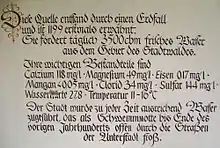 Diese Quelle entstand durch einen Erdfall
und ist 1199 erstmals erwähnt.
Sie fördert täglich 3500cbm frisches Wasser
aus dem Gebiet des Stadtwaldes.
Ihre wichtigen Bestandteile sind
Calzium 118 mg/l · Magnesium 49 mg/l · Eisen 0.17 mg/l
Mangan <0.05 mg/l · Clorid 34 mg/l · Sulfat 144 mg/l
Wasserhärte 27.8 · Temperatur 11-16°C
Der Stadt wurde zu jeder Zeit ausreichend Wasser
zugeführt, das als Schwemmotte bis Ende des
vorigen Jahrhunderts offen durch die Straßen
der Unterstadt floß.